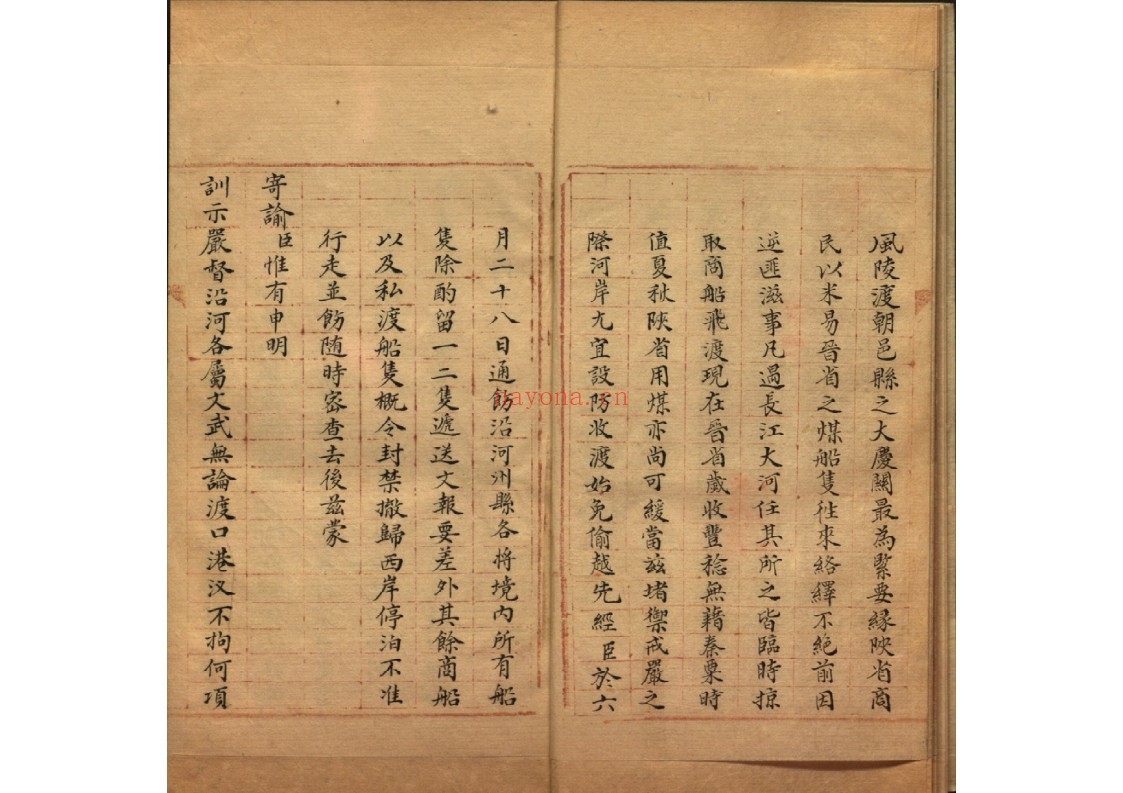 風陵渡朝邑縣之大慶關最為緊要緣陝省商
民以米易晉省之煤船隻徃來絡繹不絕前因
逆匪滋事凡過長江大河任其所之皆臨時掠
取商船飛渡現在晉省歲收豐稔無藉秦粟時
值夏秋陝省用煤亦尚可緩當茲堵禦戒嚴之
際河岸尤宜設防收渡始免偷越先經臣於六
月二十八日通飭沿河州縣各將境內所有船
隻除酌留一二隻遞送文報要差外其餘商船
以及私渡船隻概令封禁撤歸西岸停泊不准
行走並飭随時密查去後茲蒙
寄諭臣惟有申明
訓示嚴督沿河各屬文武無論渡口港汊不拘何項